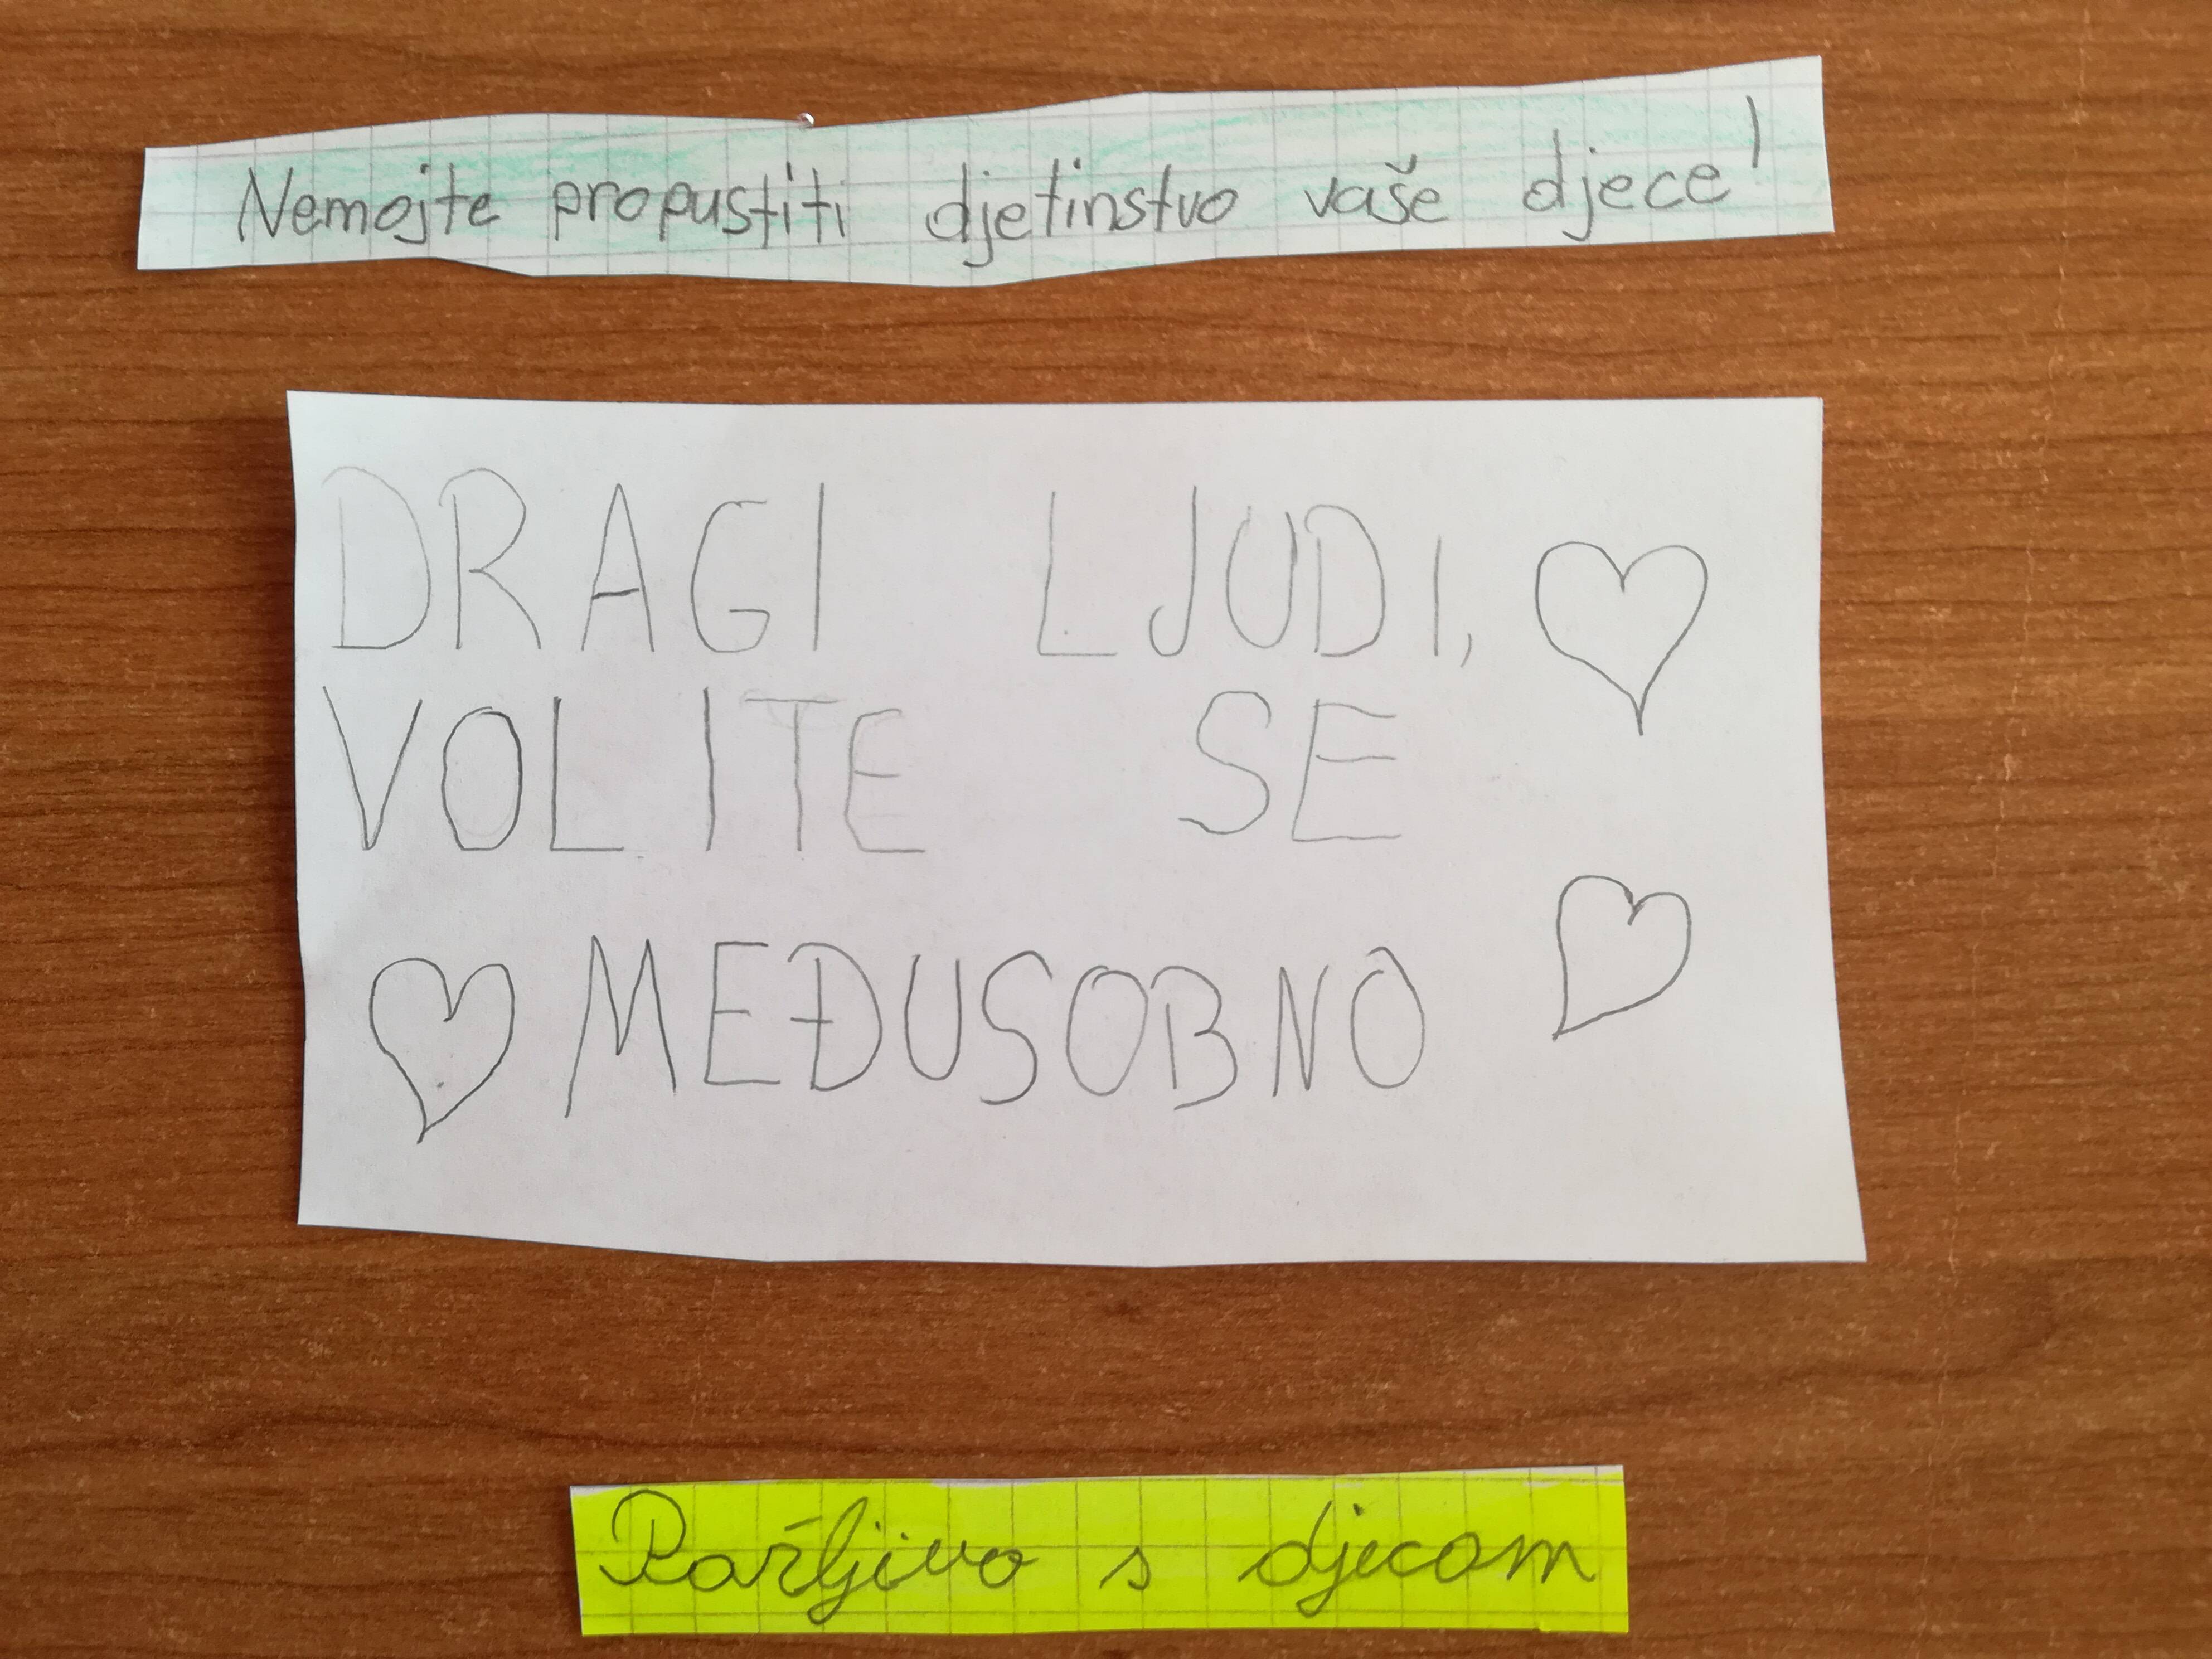 Nemojte propustiti djetinstvo vaše djece!
DRAGI LJUDI,
VOLITE SE
MEĐUSOBNO
Pažljivo s djecom